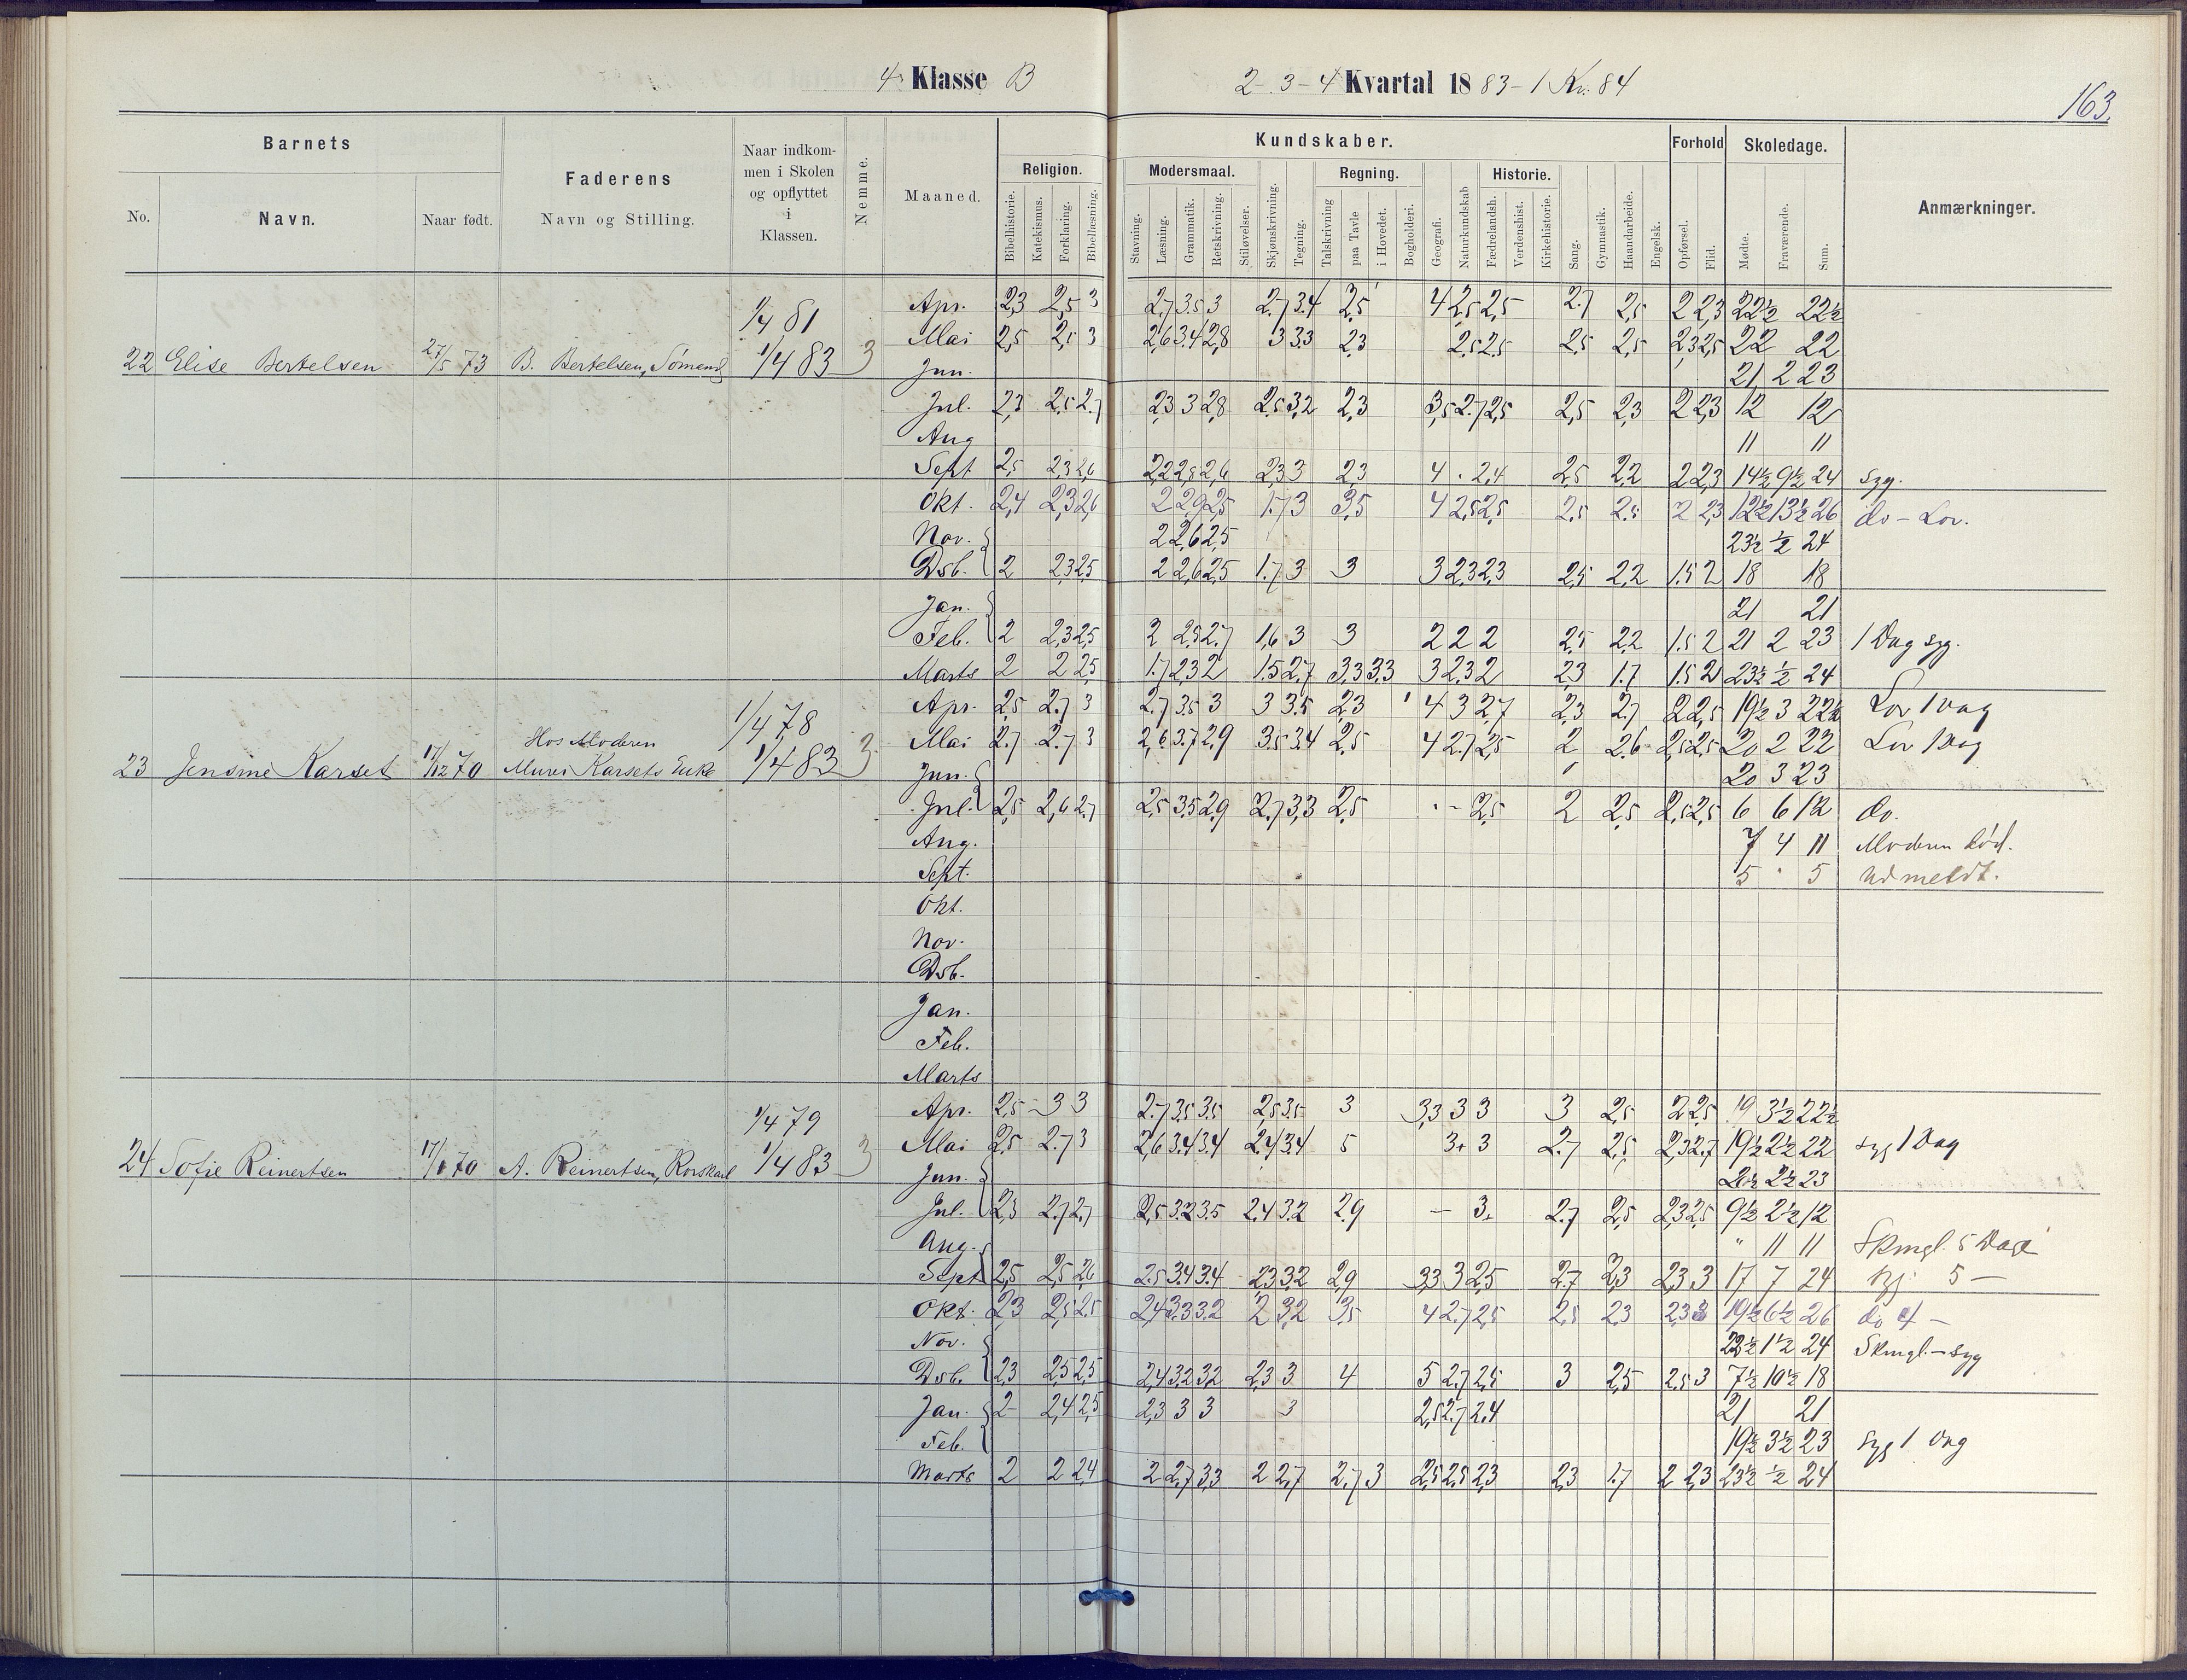 4. Klasse B
2-3-4 Kvartal 1883-1 Kv. 84
163.
Barnets
No.
Navn.
Naar født.
Faderens
Navn og Stilling.
Naar indkom-
men i Skolen
og opflyttet
i
Klassen.
Nemme.
Maaned.
Kundskaber.
Religion.
Bibelhistorie.
Katekismus.
Forklaring.
Bibellæsning.
Modersmaal.
Stavning.
Læsning.
Grammatik.
Retskrivning.
Stiløvelser.
Skjønskrivning.
Tegning.
Regning.
Talskrivning
paa Tavle
i Hovedet.
Bogholderi.
Geografi.
Naturkundskab
Historie.
Fædrelandsh.
Verdenshist.
Kirkehistorie.
Sang.
Gymnastik.
Haandarbeide.
Engelsk.
Forhold
Opførsel.
Flid.
Skoledage.
Mødte.
Fraværende.
Sum.
Anmærkninger.
22 Elise Bertelsen 27/5 73 B. Bertelsen, Sømand 1/4 81 1/4 83 3
Apr. 2,3 2,5 3 2,7 3,5 3 2,7 3,4 2,5 4 2,5 2,5 2,7 2,5 2 2,3 22½ 22½
Mai 2,5 2,5 3 2,6 3,4 2,8 3 3,3 2,3 2,5 2,5 2,5 2,5 2,3 2,5 22 22
Jun. 21 2 23
Jul. 2,3 2,5 2,7 2,3 3 2,8 2,5 3,2 2,3 3,5 2,7 2,5 2,5 2,3 2 2,3 12 12
Aug 11 11
Sept 2,5 2,3 2,6 2,2 2,8 2,6 2,3 3 2,3 4 . 2,4 2,5 2,2 2 2,3 14½ 9½ 24 syg.
Okt. 2,4 2,3 2,6 2 2,9 2,5 1,7 3 3,5 4 2,5 2,5 2,5 2,5 2 2,3 12½ 13½ 26 do - Lov.
Nov. 2 2,6 2,5 23½ ½ 24
Dsb. 2 2,3 2,5 2 2,6 2,5 1,7 3 3 3 2,3 2,3 2,5 2,2 1,5 2 18 18
Jan. 21 21
Feb. 2 2,3 2,5 2 2,5 2,7 1,6 3 3 2 2 2 2,5 2,2 1,5 2 21 2 23 1 Dag syg.
Marts 2 2 2,5 1,7 2,3 2 1,5 2,7 3,3 3,3 3 2,3 2 2,3 1,7 1,5 2 23½ ½ 24
23 Jensine Karset 17/12 70 Hos Moderen
Murer Karsets Enke 1/4 78 1/4 83 3
Apr. 2,5 2,7 3 2,7 3,5 3 3 3,5 2,3 4 3 2,7 2,3 2,7 2 2,5 19½ 3 22½ Lov 1 Dag
Mai 2,7 2,7 3 2,6 3,7 2,9 3,5 3,4 2,5 4 2,7 2,5 2 2,6 2,5 2,5 20 2 22 Lov 1 Dag
Jun. 20 3 23
Jul. 2,5 2,6 2,7 2,5 3,5 2,9 2,7 3,3 2,5 . - 2,5 2 2,5 2,5 2,5 6 6 12 do.
Aug. 7 4 11 Moderen død.
Sept. 5 " 5 Udmeldt.
Okt.
Nov.
Dsb.
Jan.
Feb.
Marts
24 Sofie Reinertsen A. Reinertsen, Rorskarl 1/4 79 1/4 83 3
Apr. 2,5 3 3 2,7 3,5 3,5 2,5 3,5 3 3,3 3 3 3 2,5 2 2,5 19 3½ 22½
Mai 2,5 2,7 3 2,6 3,4 3,4 2,4 3,4 5 3+ 3 2,7 2,5 2,3 2,7 19½ 2½ 22 syg 1 Dag
Jun. 20½ 2½ 23
Jul. 2,3 2,7 2,7 2,5 3,2 3,5 2,4 3,2 2,9 - 3. 2,7 2,5 2,3 2,5 9½ 2½ 12
Aug. " 11 11 Skmgl. 5 Dage
Sept 2,5 2,5 2,6 2,5 3,4 3,4 2,3 3,2 2,9 3,3 3 2,5 2,7 2,3 2,3 3 17 7 24 syg 5 -
Okt. 2,3 2,5 2,5 2,4 3,3 3,2 2 3,2 3,5 4 2,7 2,5 2,5 2,3 2,3 3 19½ 6½ 26 do 4 -
Nov. 22½ 1½ 24 Skmgl. - syg
Dsb. 2,3 2,5 2,5 2,4 3,2 3,2 2,3 3 4 5 2,7 2,5 3 2,5 2,5 3 7½ 10½ 18
Jan. 2 2,4 2,5 2,3 3 3 3 2,5 2,7 2,4 21 21
Feb. 19½ 3½ 23 syg 1 Dag
Marts 2 2 2,4 2 2,7 3,3 2 2,7 2,7 3 2,5 2,5 2,3 2,3 1,7 2 2,3 23½ ½ 24